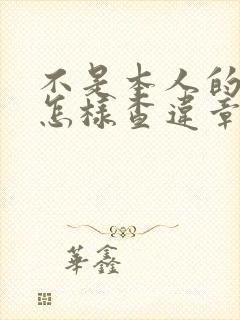 不是本人的
怎樣查違章
華鑫